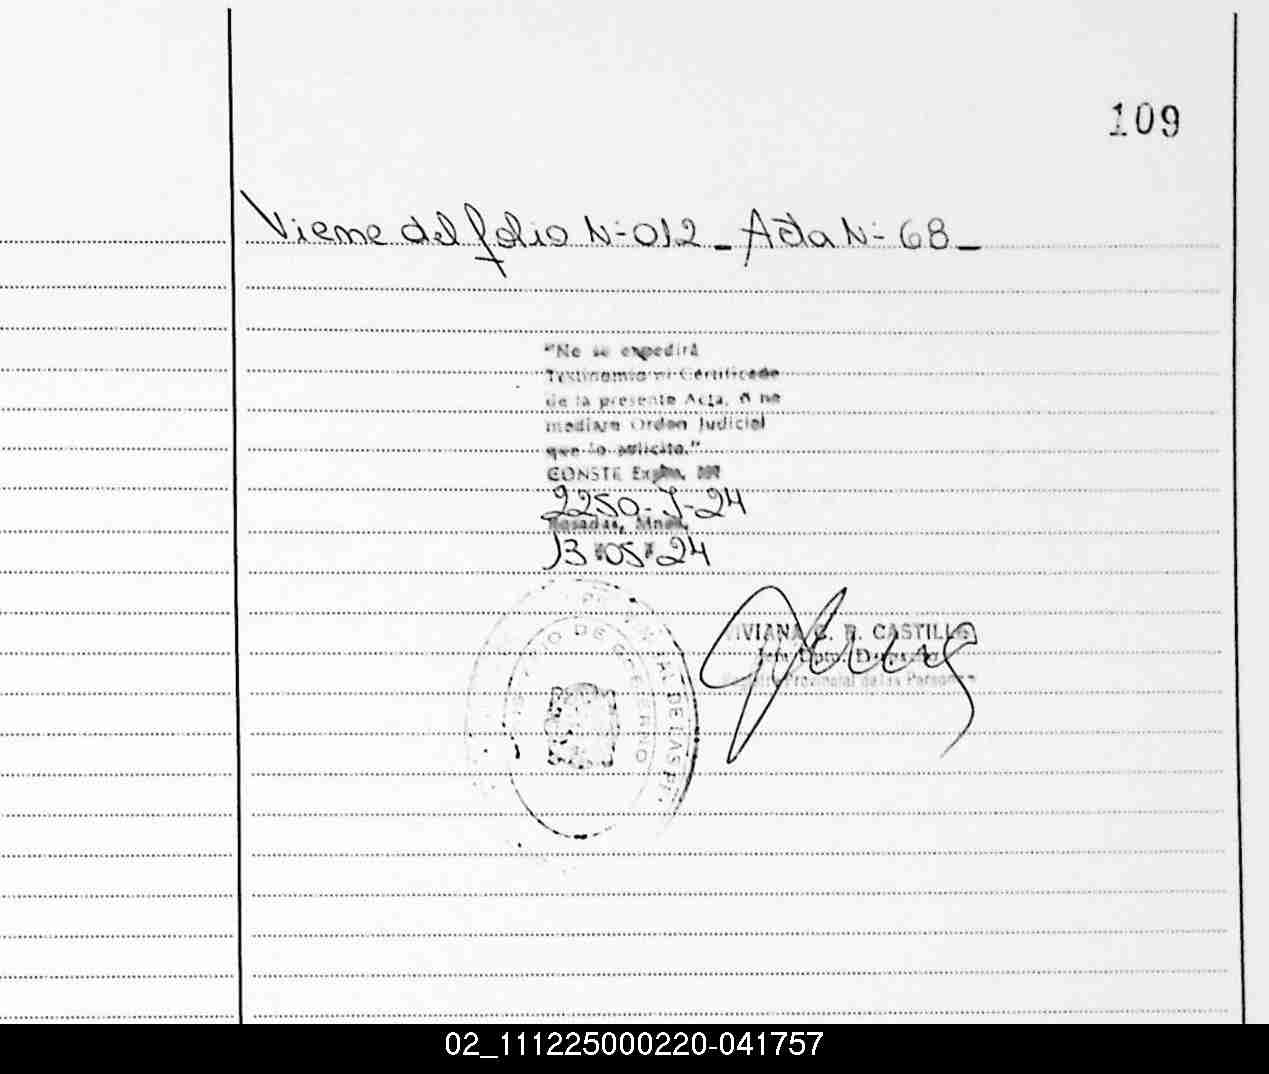 109
Viene del folio N-012 - Acta N- 68 -
"No se expedirá
Testimonio ni Certificado
de la presente Acta, si no
mediare Orden Judicial
que lo solicite."
CONSTE Expte. Nº
2250-J-24
Posadas, Mnes.
13 05 24
VIVIANA C. R. CASTILLO
Jefe Dpto.
Registro Provincial de las Personas
PROVINCIAL DE LAS PE
MINISTERIO DE GOBIERNO
02_111225000220-041757